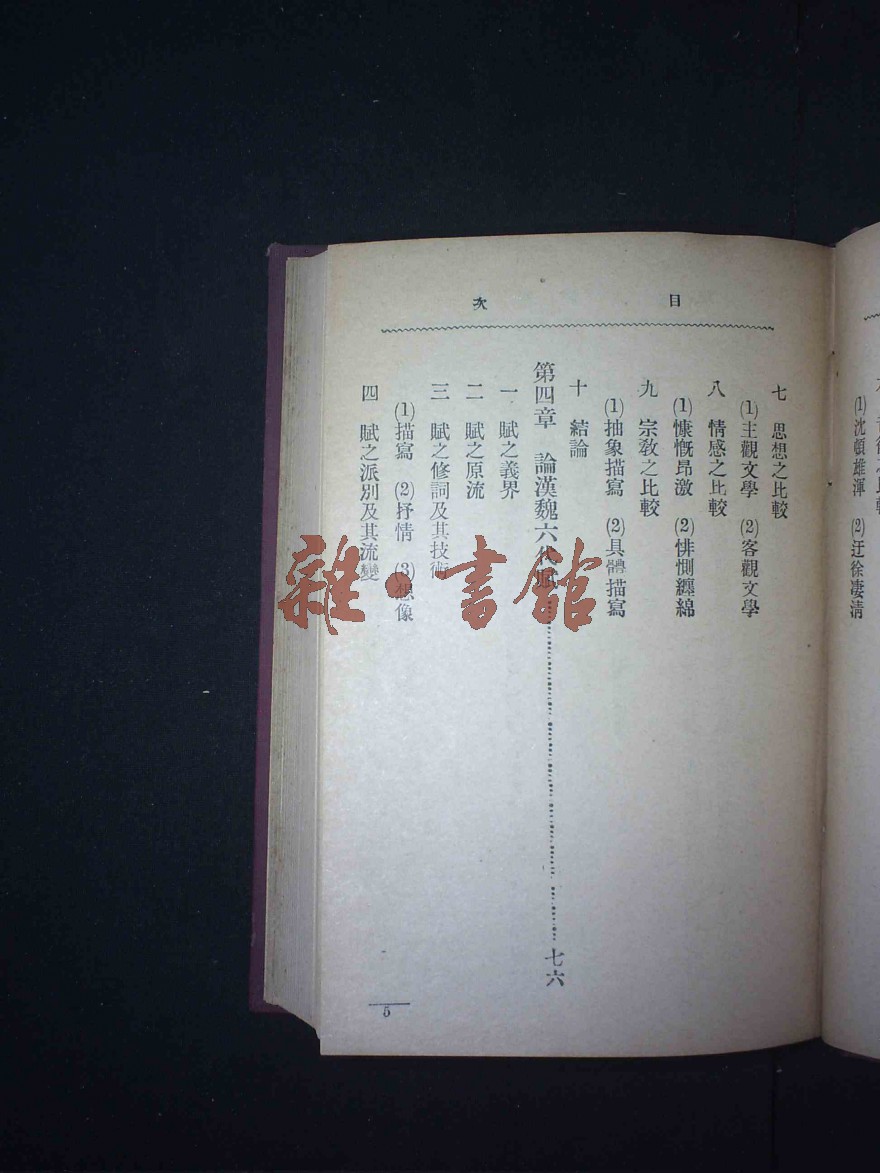 (1)沈頓雄渾 (2)迂徐凄清
目次
七 思想之比較
(1)主觀文學 (2)客觀文學
八 情感之比較
(1)慷慨昂激 (2)悱惻纏綿
九 宗教之比較
(1)抽象描寫 (2)具體描寫
十 結論
第四章 論漢魏六代賦 七六
一 賦之義界
二 賦之原流
三 賦之修詞及其技術
(1)描寫 (2)抒情 (3)想像
四 賦之派別及其流變
5
雜·書館